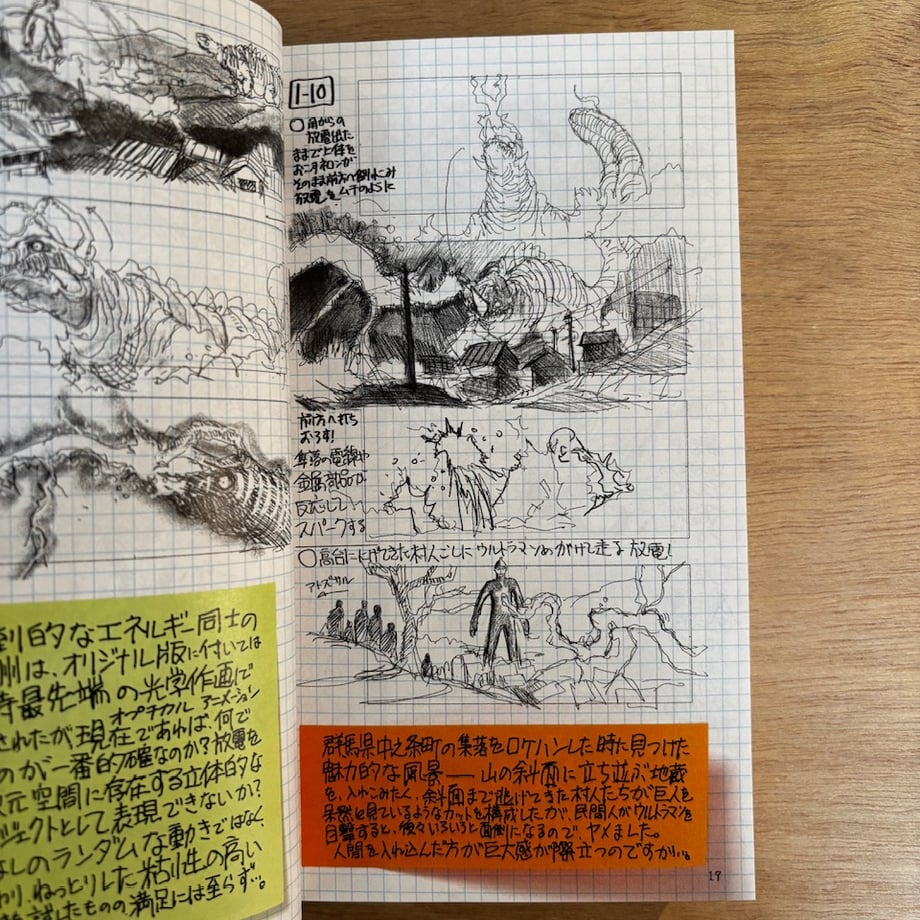 1-10
○角からの
放電出た
ままで上体を
おこすネロンガ
そのまま前方へ倒れこみ
放電をムチのように
前方へ打ち
おろす!
集落の電線や
金属部品が
反応して
スパークする
○高台ににげてきた村人ごしにウルトラマンめがけ走る放電!
アトズサル
群馬県中之条町の集落をロケハンした時に見つけた
魅力的な風景——山の斜面に立ち並ぶ地蔵
を、入れこみたく、斜面まで逃げてきた村人たちが巨人を
呆然と見ているようなカットを構成したが、民間人がウルトラマンを
目撃すると、後々いろいろと面倒になるので、ヤメました。
人間を入れ込んだ方が巨大感が際立つのですが…。
19
的なエネルギー同士の
は、オリジナル版に付いては
最先端の光学作画で
オプチカル アニメーション
されたが現在であれば、何で
のが一番的確なのか?放電を
元空間に存在する立体的な
ジェクトとして表現できないか?
なしのランダムな動きではなく、
ねっとりした粘性の高い
試したものの満足には至らず…。